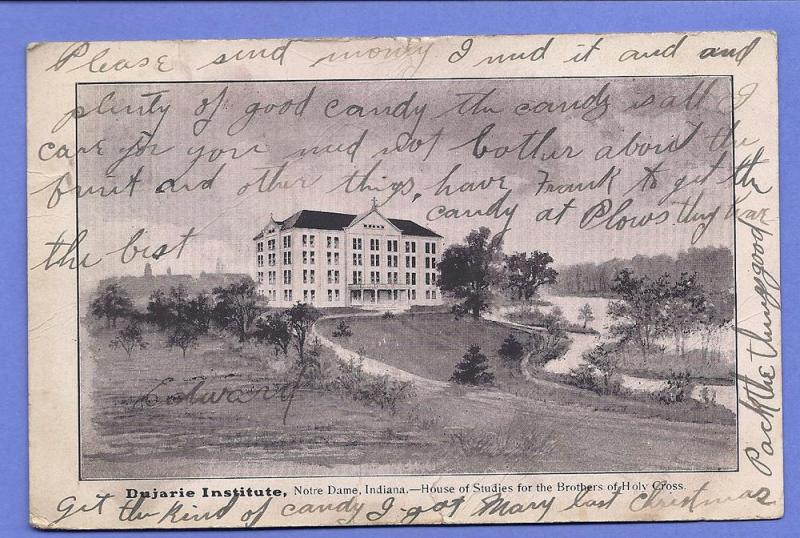 Please send money I need it and and
plenty of good candy the candy is all I
care for you need not bother about the
fruit and other things, have Frank to get the
candy at Plows they have
the best
Edward
Pack the things good
Dujarie Institute, Notre Dame, Indiana.—House of Studies for the Brothers of Holy Cross.
Get the kind of candy I got Mary last Christmas